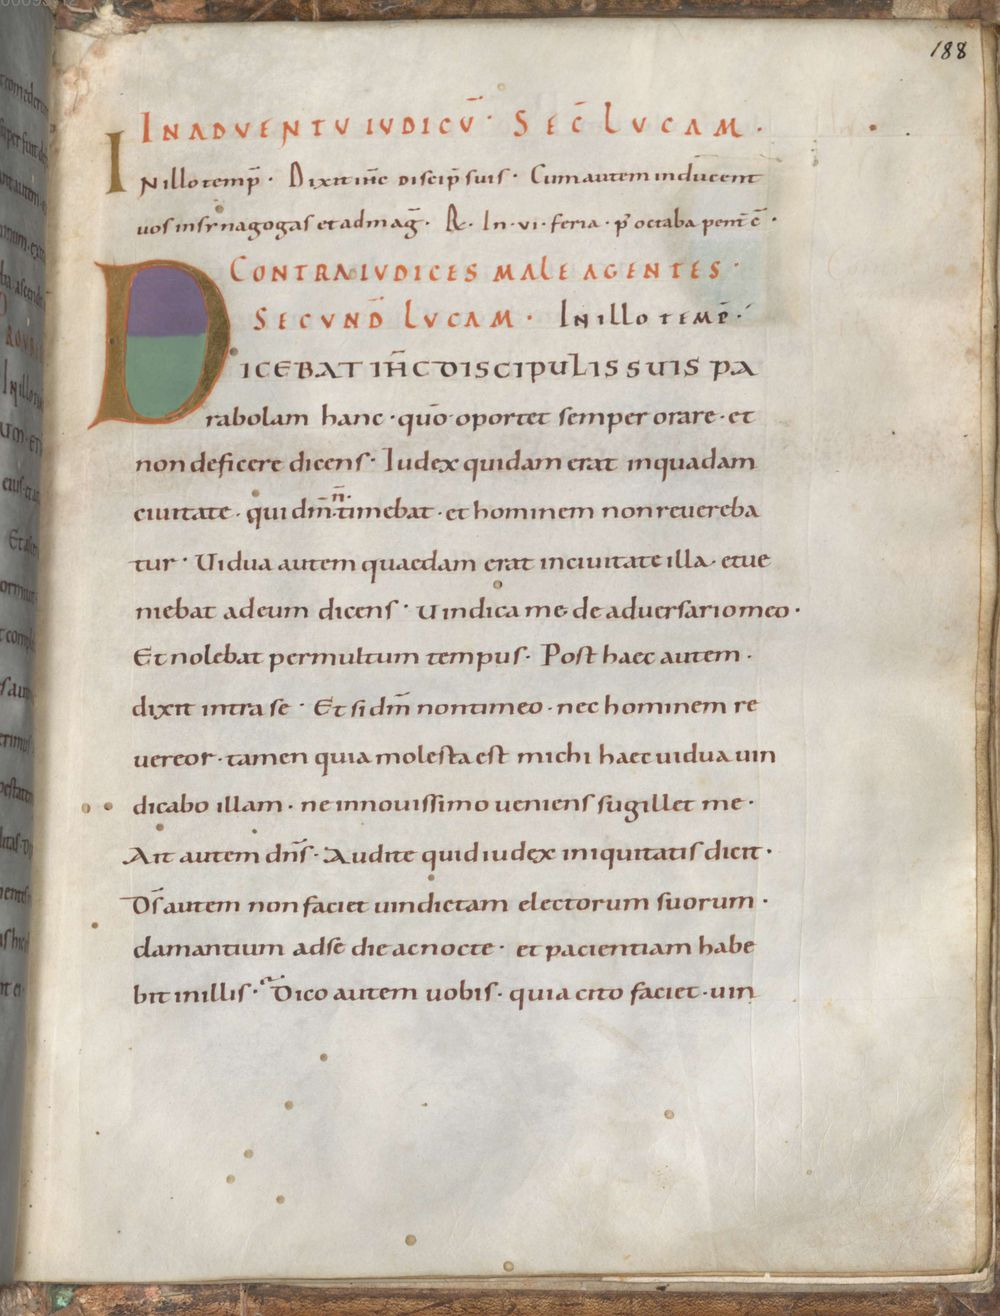 188
IN ADVENTV IVDICV̄· SEC̄ LVCAM·
IN illo temp̄· Dixit ih̄c discip̄ suis· Cum autem inducent
uos insynagogas et admaḡ· R· In·vi·feria·p̄ octaba pent̄c̄·
CONTRA IVDICES MALE AGENTES·
SECVND̄ LVCAM· IN illo TEMP̄·
DICEBAT IH̄C DISCIPULIS SUIS PA
rabolam hanc·quō oportet semper orare·et
non deficere dicens· Iudex quidam erat inquadam
ciuitate·qui dm̄·n̄·timebat·et hominem non reuereba
tur· Uidua autem quaedam erat inciuitate illa·et ue
niebat adeum dicens· Uindica me de aduersario meo·
Et nolebat per multum tempus· Post haec autem·
dixit intra se· Et si dm̄ non timeo·nec hominem re
uereor·tamen quia molesta est michi haec uidua uin
dicabo illam·ne innouissimo ueniens sugillet me·
Ait autem dn̄s· Audite quid iudex iniquitatis dicit·
Ds̄ autem non faciet uindictam electorum suorum·
clamantium adse die ac nocte·et pacientiam habe
bit inillis· Dico autem uobis·quia cito faciet·uin